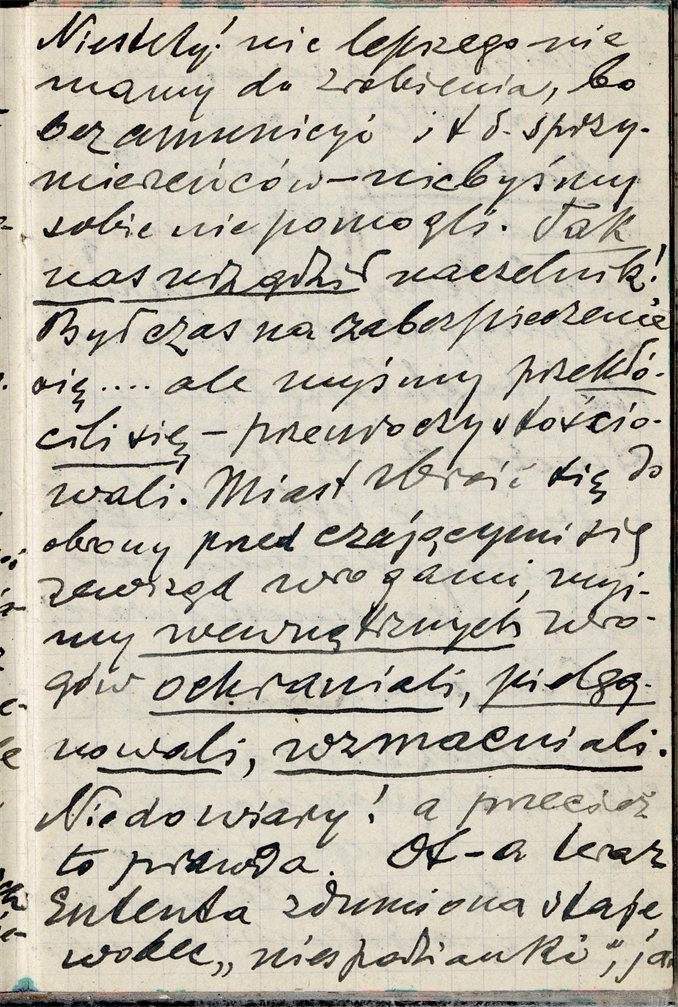 Niestety! nic lepszego nie
mamy do zrobienia, bo
bez amunicyi i t d. sprzy-
mierzeńców – nicbyśmy
sobie nie pomogli. Tak
nas urządził naczelnik!
Był czas na zabezpieczenie
się .... ale myśmy przekłó-
cili się – przeuroczystościo-
wali. Miast zbroić się do
obrony przed czającymi się
zewsząd wrogami, myś-
my wewnętrznych wro-
gów ochraniali, pielęg-
nowali, wzmacniali.
Niedowiary! a przecież
to prawda. Ot-a teraz
Ententa zdumiona staje
wobec „niespodzianki",